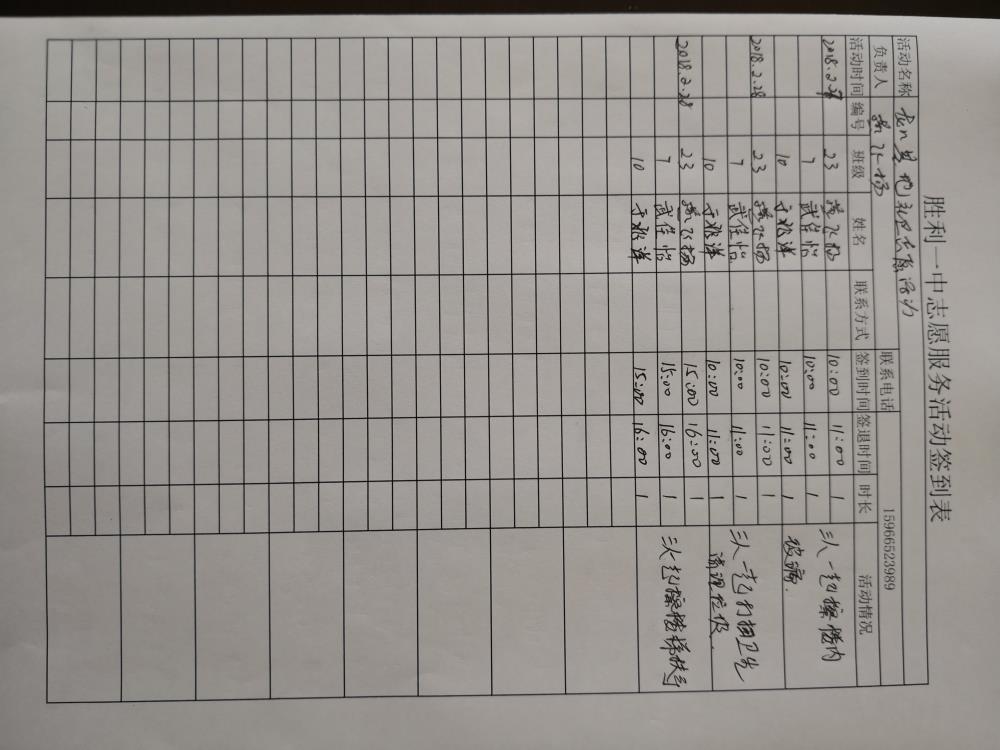 胜利一中志愿服务活动签到表
活动名称
负责人 联系电话 15966523989
活动时间 编号 班级 姓名 联系方式 签到时间 签退时间 时长 活动情况
23 10:00 11:00 1 三人一起擦楼内
7 武佳怡 10:00 11:00 1 玻璃.
10 于雅洋 10:00 11:00 1
2018.2.28 23 10:00 11:00 1 三人一起打扫卫生
7 武佳怡 10:00 11:00 1 清理垃圾.
10 于雅洋 10:00 11:00 1
2018.2.28 23 15:00 16:00 1 三人一起擦楼梯扶手
7 武佳怡 15:00 16:00 1
10 于雅洋 15:00 16:00 1